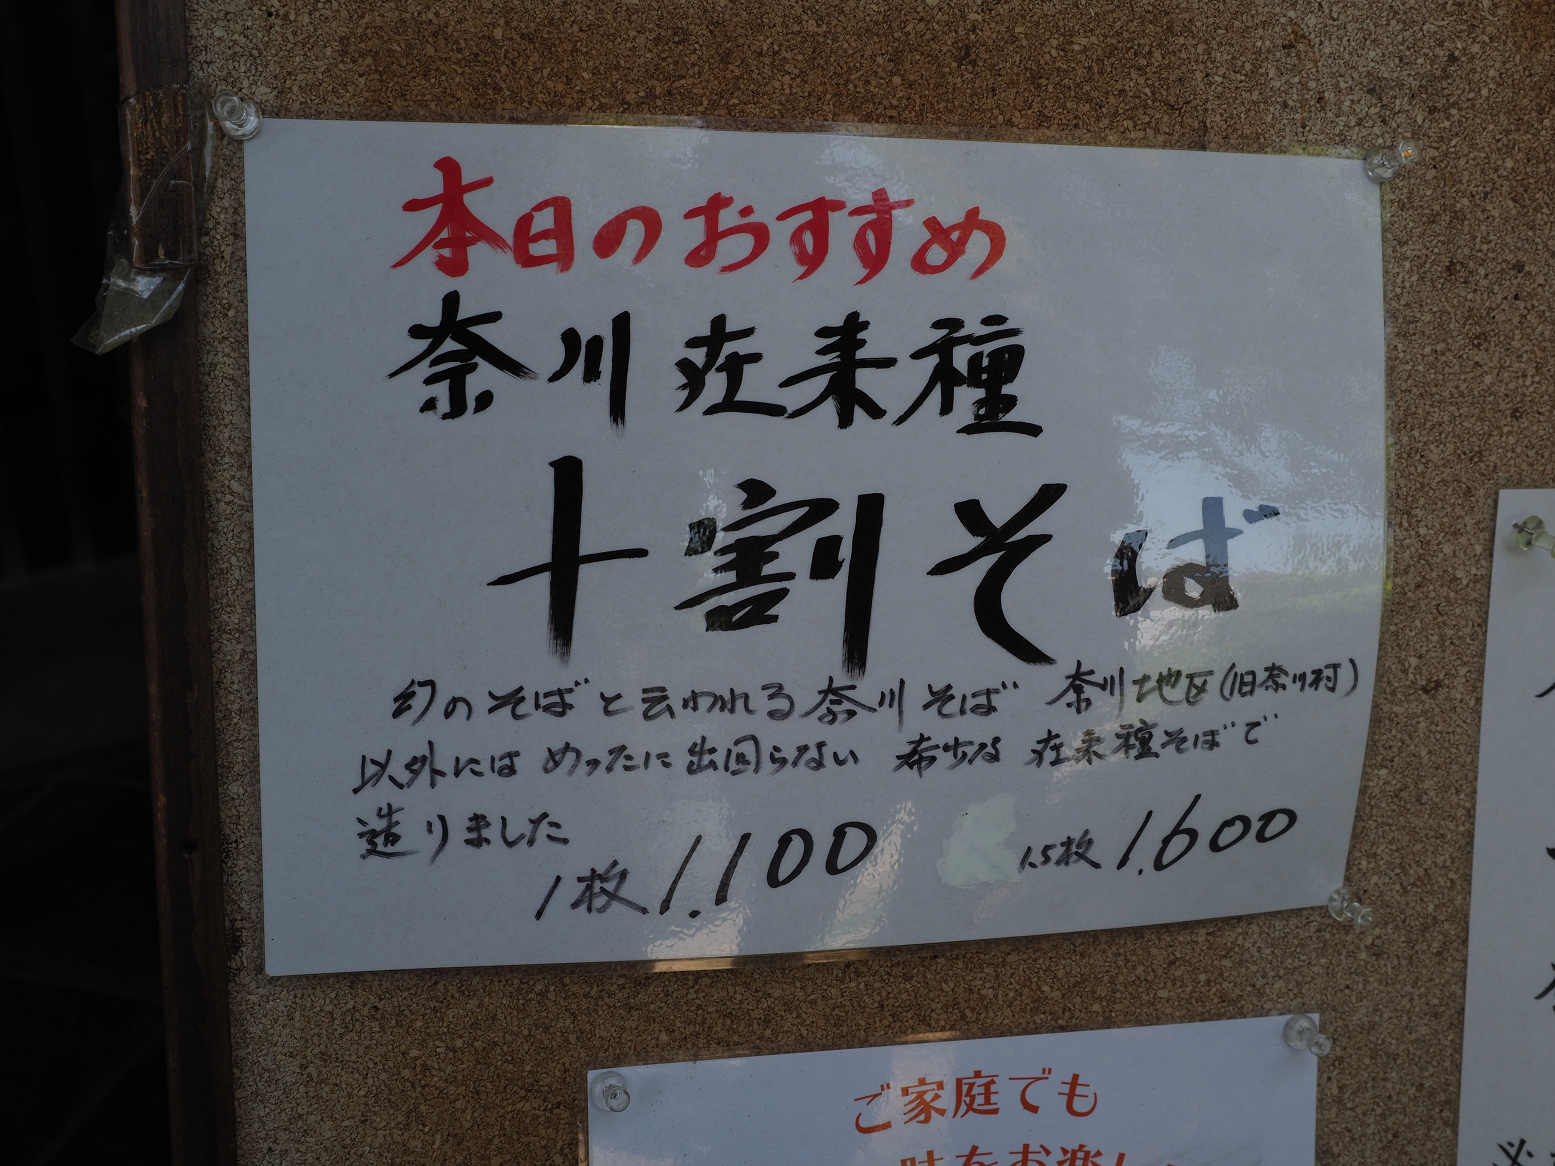 本日のおすすめ
奈川在来種
十割そば
幻のそばと云われる奈川そば 奈川地区(旧奈川村)
以外にはめったに出回らない 希少な 在来種そばで
造りました
1枚 1.100 1.5枚 1.600
ご家庭でも
味をお楽し